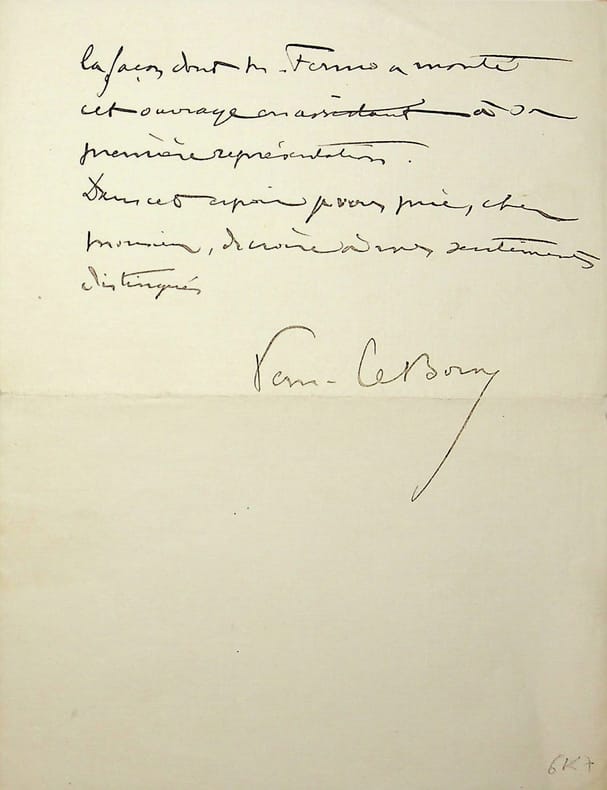 la façon dont M. Fermo a monté
cet ouvrage en assistant à sa
première représentation.
Dans cet espoir je vous prie, cher
monsieur, de croire à mes sentiments
distingués
Fern. Le Borne
6K7